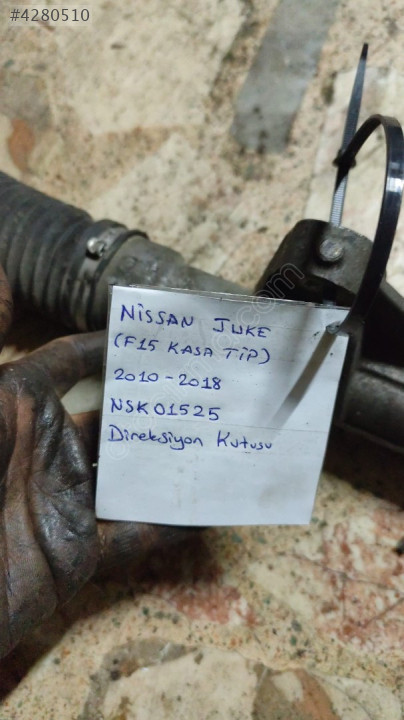 #4280510
NİSSAN JUKE
(F15 KASA TİP)
2010-2018
NSK01525
Direksiyon Kutusu